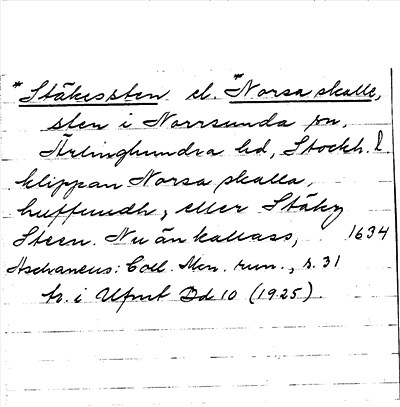 *Stäkessten el. *Norsa skalle,
sten i Norrsunda sn,
Ärlinghundra hd, Stockh. l
klippan Norsa skalla,
huffuudh, eller Stäky
Steen. Nu än kallass, 1634
Aschaneus: Coll. Mon. run., s. 31
tr. i Upnt Dd 10 (1925).